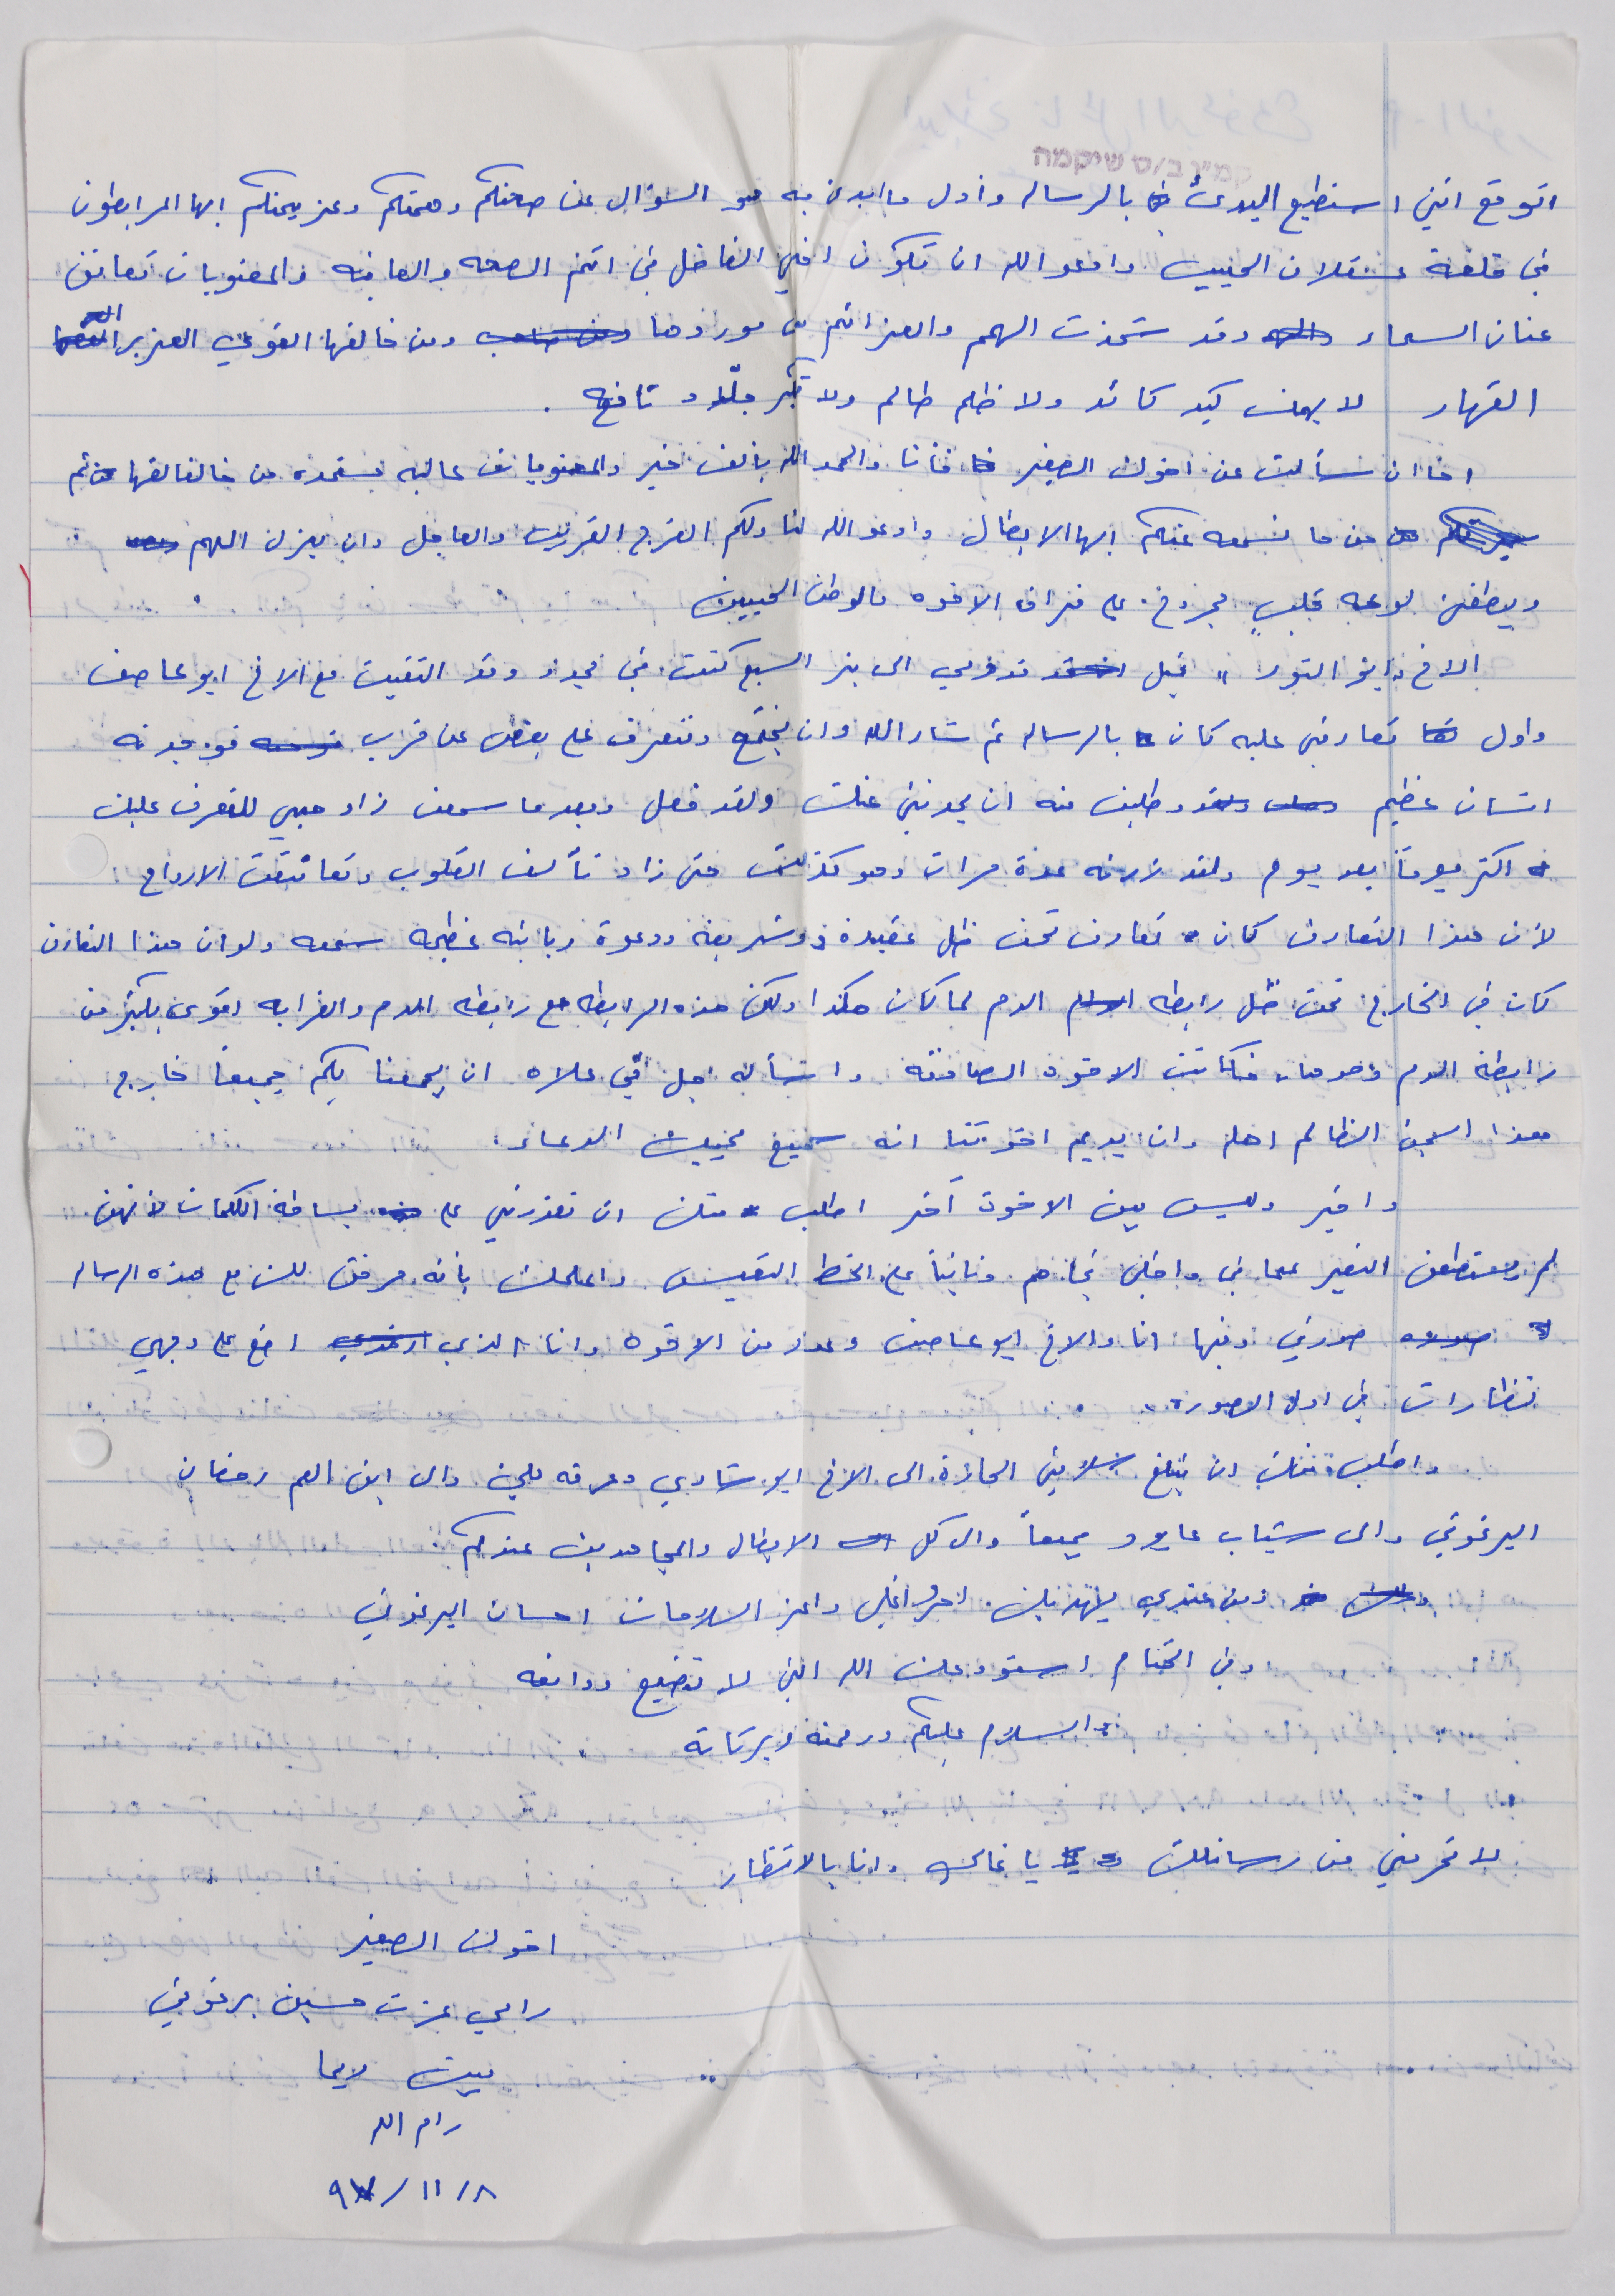 קמ"ן ב/ס שיקמה
اتوقع انني استطيع البدئ بالرساله وأول ما ابدئ به هو السؤال عن صحتكم وهمتكم وعزيمتكم ايها المرابطون
في قلعة عسقلان الحبيب وادعو الله ان تكون اخي الفاضل في اتم الصحه والعافيه والمعنويات تعانق
عنان السماء وقد شحذت الهمم والعزائم من موردها ومن خالقها القوي العزيز
القهار لا يهمك كيد كائد ولا ظلم ظالم ولا تكبر جلاد تافه .
اخا ان سألت عن اخوك الصغير فأنا والحمد الله بألف خير والمعنويات عاليه مستمده من خالقها ثم
من ما نسمعه عنكم ايها الابطال وادعو الله لنا ولكم الفرج القريب والعاجل وان يزل الهم
ويطفئ لوعه قلب مجروح على فراق الاخوه والوطن الحبيب
الاخ ابو النور " قبل قدومي الى بئر السبع كنت في مجدو وقد التقيت مع الاخ ابو عاصف
واول تعارفي عليه كان بالرساله ثم شاء الله وان نجتمع ونتعرف على بعض عن قرب فوجدته
انسان عظيم وطلبت منه ان يحدثني عنك ولقد فعل وبعد ما سمعت زاد حبي للتعرف عليك
اكثر يوماً بعد يوم ولقد زرته عدة مرات وهو كذلك حتى زاد تآلف القلوب وتعانقت الارواح
لأن هذا التعارف كان تعارف تحت ظل عقيدة وشريعه ودعوة ربانيه عظيمه سمعه ولو ان هذا التعارف
كان في الخارج تحت ظل رابطه الدم لما كان هكذا ولكن هذه الرابطه مع رابطه الدم والقرابه اقوى بكثير من
رابطة الدم وحدها، فكانت الاخوة الصادقه واسأله جل في علاه ان يجمعنا بكم جميعاً خارج
هذا السجن الظالم اهله وان يديم اخوتنا انه سميع مجيب الدعاء .
واخير وليس بين الاخوة آخر اطلب منك ان تعذرني على بساطة الكلمات لأنهن
لم يستطعن التعبير عما في داخلي تجاهكم وثانياً على الخط التعيس واعلمك بأنه مرفق لك مع هذه الرساله
صورتي وفيها انا والاخ ابو عاصف وعدد من الاخوه وانا الذي اضع على وجهي
نظارات في اول الصورة .
واطلب منك ان تبلغ سلامي الحارة الى الاخ ابو شادي وعرفه علي وال ابن العم رمضان
البرغوثي والى شباب عابود جميعاً والى كل الابطال والمجاهدين عندكم
ومن عندي يهديك احر واغلى واعز السلامات احسان البرغوثي
وفي الختام استودعك الله الذي لا تضيع ودائعه
والسلام عليكم ورحمة وبركاته
لا تحرمني من رسائلك يا غالي وانا بالانتظار
اخوك الصغير
رامي عزت حسين برغوثي
بيت ريما
رام الله
٨/ ١١ /٩٧